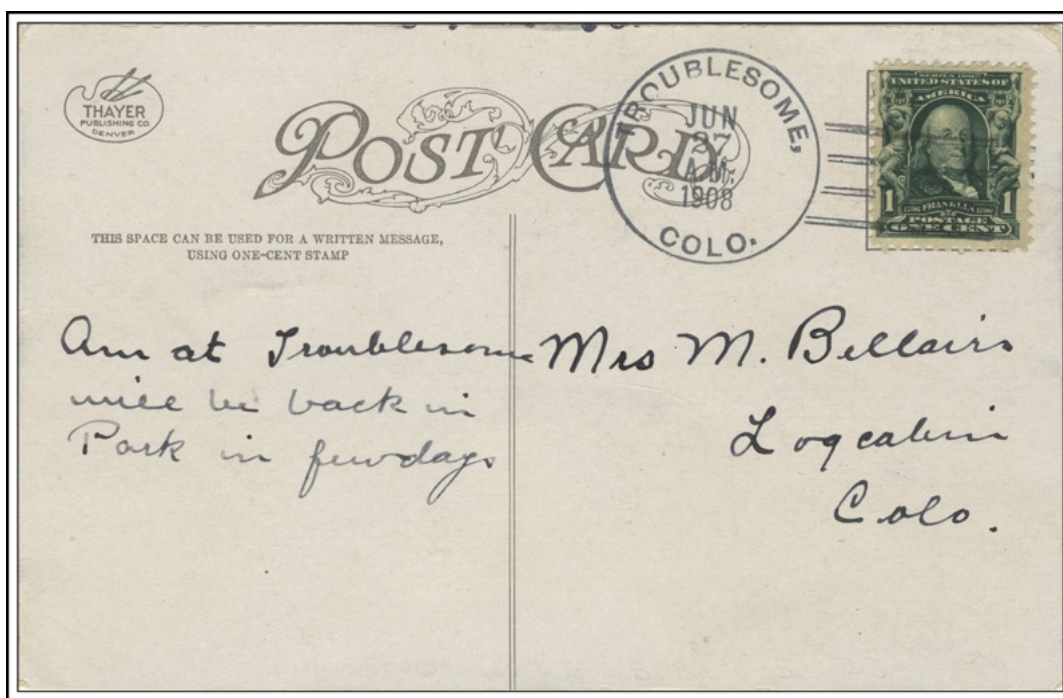 THAYER
PUBLISHING CO.
DENVER
POST CARD
TROUBLESOME,
JUN
27
A.M.
1908
COLO.
SERIES 1902
UNITED STATES OF
AMERICA
1 FRANKLIN 1
POSTAGE
ONE CENT
THIS SPACE CAN BE USED FOR A WRITTEN MESSAGE,
USING ONE-CENT STAMP
Am at Troublesome
will be back in
Park in few days
Mrs M. Bellairs
Logcabin
Colo.